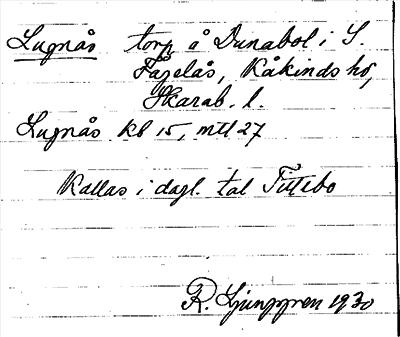 Lugnås torp å Dunabol i S.
Fågelås, Kåkinds hd,
Skarab. l.
Lugnås Kb 15, mtl 27
Kallas i dagl. tal Tittebo
R. Ljunggren 1930